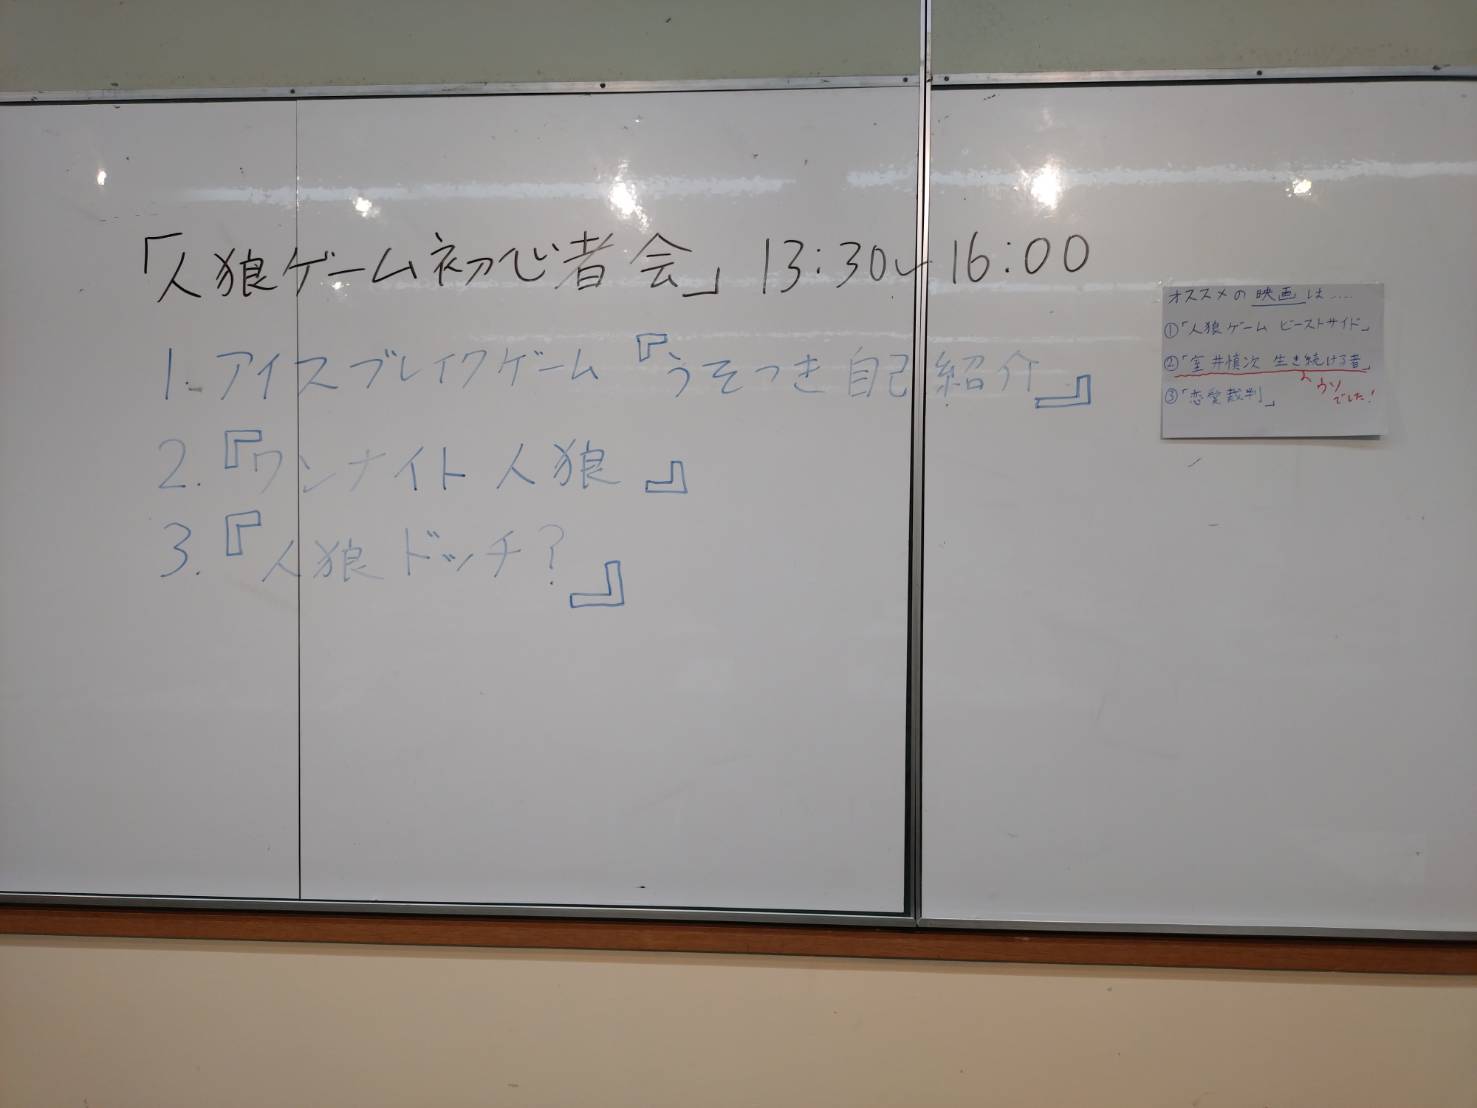 「人狼ゲーム初心者会」 13:30〜16:00
1. アイスブレイクゲーム『うそつき自己紹介』
2.『ワンナイト人狼』
3.『人狼ドッチ?』
オススメの映画は....
①「人狼ゲーム ビーストサイド」
②「室井慎次 生き続ける者」
ウソでした!
③「恋愛裁判」